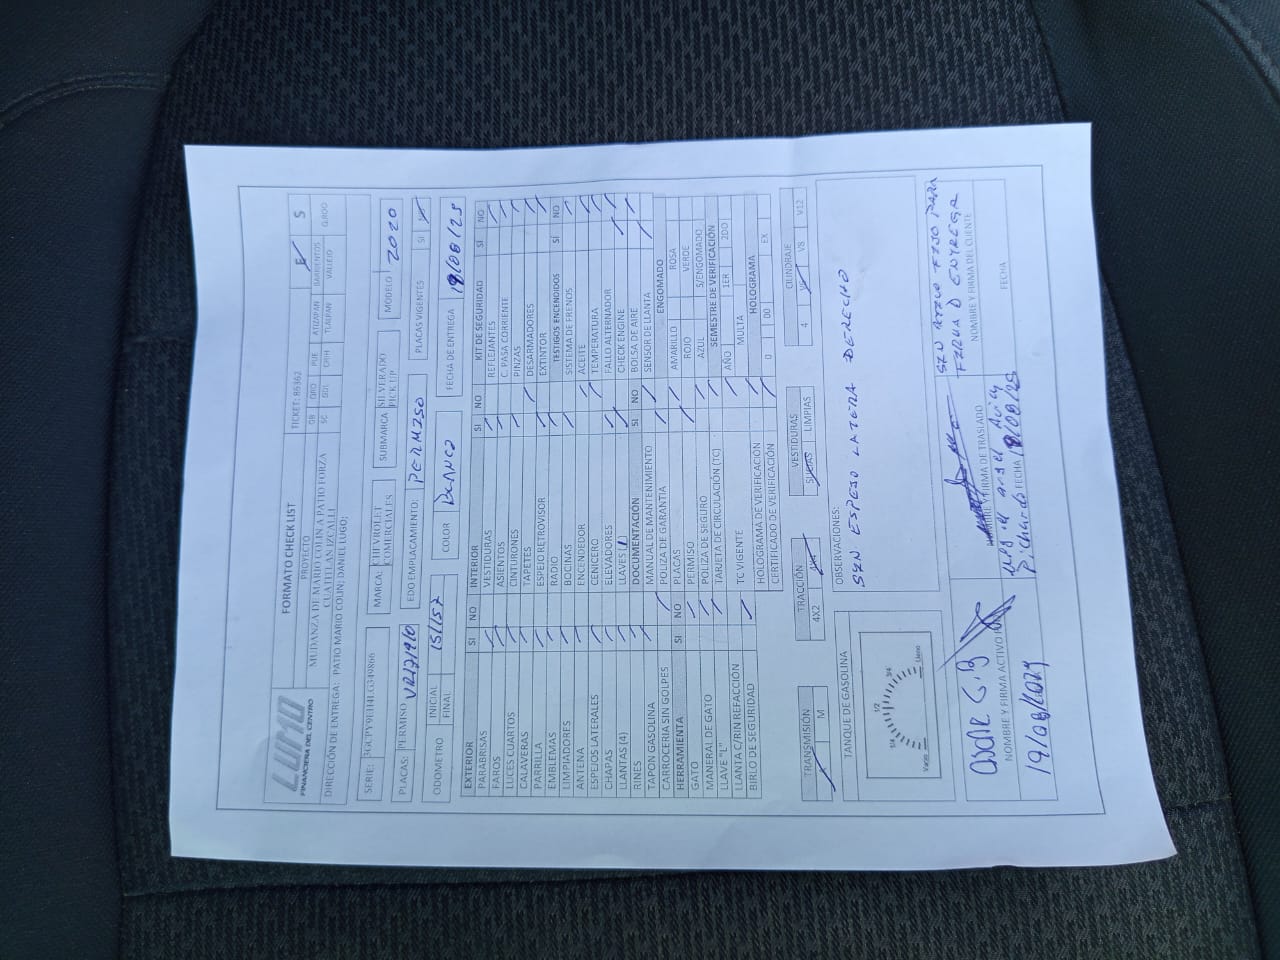 LUMO
FINANCIERA DEL CENTRO
FORMATO CHECK LIST
PROYECTO
TICKET: 86362
E S
MUDANZA DE MARIO COLIN A PATIO FORZA
CUATITLAN IZCALLI
OB QRO PUE ATIZAPAN BARRIENTOS Q.ROO
SC SDL CHH TLALPAN VALLEJO
DIRECCIÓN DE ENTREGA: PATIO MARIO COLIN; DANIEL LUGO;
SERIE:
MARCA: CHEVROLET COMERCIALES
SUBMARCA SILVERADO PICK UP
MODELO 2020
PLACAS: PERMISO
EDO EMPLACAMIENTO: PERMISO
PLACAS VIGENTES SI
ODOMETRO INICIAL 151157
FINAL
COLOR BLANCO
FECHA DE ENTREGA 19/08/25
EXTERIOR SI NO
PARABRISAS
FAROS
LUCES CUARTOS
CALAVERAS
PARRILLA
EMBLEMAS
LIMPIADORES
ANTENA
ESPEJOS LATERALES
CHAPAS
LLANTAS (4)
RINES
TAPON GASOLINA
CARROCERIA SIN GOLPES
HERRAMIENTA SI NO
GATO
MANERAL DE GATO
LLAVE "L"
LLANTA C/RIN REFACCIÓN
BIRLO DE SEGURIDAD
INTERIOR SI NO
VESTIDURAS
ASIENTOS
CINTURONES
TAPETES
ESPEJO RETROVISOR
RADIO
BOCINAS
ENCENDEDOR
CENICERO
ELEVADORES
LLAVES (1)
DOCUMENTACIÓN SI NO
MANUAL DE MANTENIMIENTO
POLIZA DE GARANTIA
PLACAS
PERMISO
POLIZA DE SEGURO
TARJETA DE CIRCULACIÓN (TC)
TC VIGENTE
HOLOGRAMA DE VERIFICACIÓN
CERTIFICADO DE VERIFICACIÓN
KIT DE SEGURIDAD SI NO
REFLEJANTES
C. PASA CORRIENTE
PINZAS
DESARMADORES
EXTINTOR
TESTIGOS ENCENDIDOS SI NO
SISTEMA DE FRENOS
ACEITE
TEMPERATURA
FALLO ALTERNADOR
CHECK ENGINE
BOLSA DE AIRE
SENSOR DE LLANTA
ENGOMADO
AMARILLO ROSA
ROJO VERDE
AZUL S/ENGOMADO
SEMESTRE DE VERIFICACIÓN
AÑO 1ER 2DO
MULTA
HOLOGRAMA
0 00 EX
TRANSMISIÓN
M
TRACCIÓN
4X2 4X4
VESTIDURAS
SUCIAS LIMPIAS
CILINDRAJE
4 V6 V8 V12
TANQUE DE GASOLINA
Vacío 1/4 1/2 3/4 Lleno
OBSERVACIONES:
SIN ESPEJO LATERA DERECHO
NOMBRE Y FIRMA ACTIVO
FIRMA DE TRASLADO
FECHA
SIN
FIJO PARA
FIRMA D ENTREGA
NOMBRE Y FIRMA DEL CLIENTE
FECHA